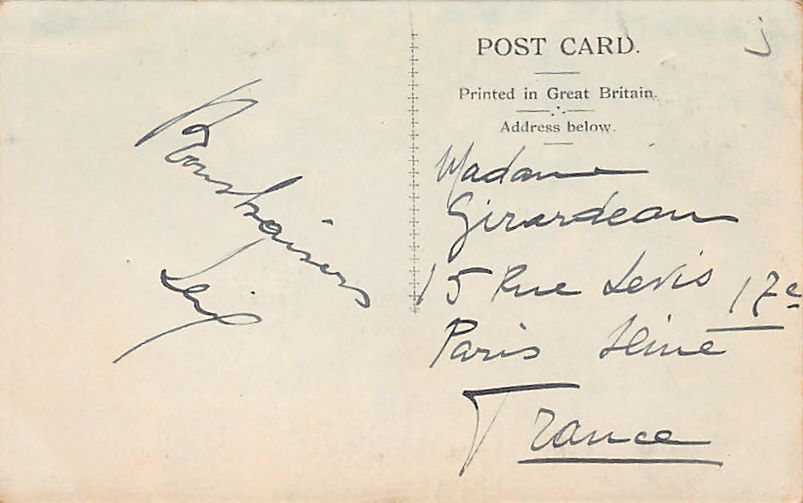 POST CARD.
Printed in Great Britain.
Address below.
Bons baisers
Madame
Girardeau
15 Rue Levis 17e
Paris Seine
France